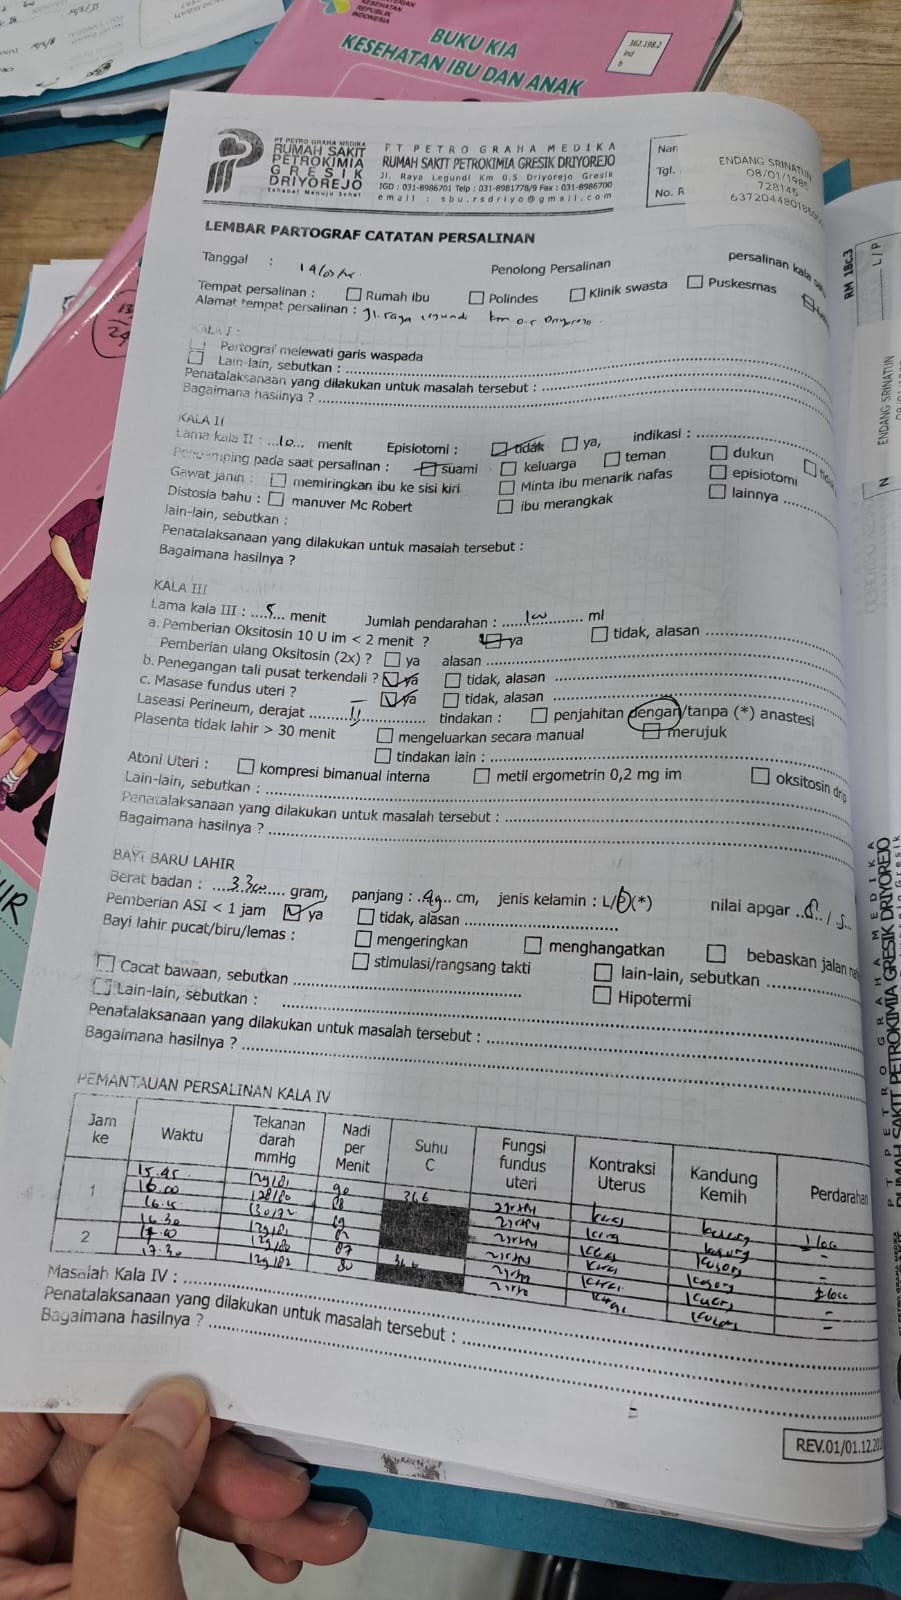 KEMENTERIAN
KESEHATAN
REPUBLIK
INDONESIA
BUKU KIA
KESEHATAN IBU DAN ANAK
362.198.2
Ind
b
PT PETRO GRAHA MEDIKA
RUMAH SAKIT
PETROKIMIA
GRESIK
DRIYOREJO
Sahabat Menuju Sehat
PT PETRO GRAHA MEDIKA
RUMAH SAKIT PETROKIMIA GRESIK DRIYOREJO
Jl. Raya Legundi Km 0.5 Driyorejo Gresik
IGD : 031-8986701 Telp : 031-8981778/9 Fax : 031-8986700
email : sbu.rsdriyo@gmail.com
Nar
Tgl.
No. R
ENDANG SRINATUN
08/01/1985
728145
LEMBAR PARTOGRAF CATATAN PERSALINAN
Tanggal :
Penolong Persalinan
persalinan kala
Tempat persalinan : Rumah ibu Polindes Klinik swasta Puskesmas
Alamat tempat persalinan : Jl. raya legundi km 0.5 Driyorejo
KALA I :
Partograf melewati garis waspada
Lain-lain, sebutkan :
Penatalaksanaan yang dilakukan untuk masalah tersebut :
Bagaimana hasilnya ?
KALA II
Lama kala II : 10 menit Episiotomi : tidak ya, indikasi :
Pendamping pada saat persalinan : suami keluarga teman dukun
Gawat janin : memiringkan ibu ke sisi kiri Minta ibu menarik nafas episiotomi
Distosia bahu : manuver Mc Robert ibu merangkak lainnya
lain-lain, sebutkan :
Penatalaksanaan yang dilakukan untuk masalah tersebut :
Bagaimana hasilnya ?
KALA III
Lama kala III : 5 menit Jumlah pendarahan : 100 ml
a. Pemberian Oksitosin 10 U im < 2 menit ? ya tidak, alasan
Pemberian ulang Oksitosin (2x) ? ya alasan
b. Penegangan tali pusat terkendali ? ya tidak, alasan
c. Masase fundus uteri ? ya tidak, alasan
Laseasi Perineum, derajat II tindakan : penjahitan dengan/tanpa (*) anastesi
Plasenta tidak lahir > 30 menit mengeluarkan secara manual merujuk
tindakan lain :
Atoni Uteri : kompresi bimanual interna metil ergometrin 0,2 mg im oksitosin drip
Lain-lain, sebutkan :
Penatalaksanaan yang dilakukan untuk masalah tersebut :
Bagaimana hasilnya ?
BAYI BARU LAHIR
Berat badan : 3300 gram, panjang : 49 cm, jenis kelamin : L/P (*) nilai apgar
Pemberian ASI < 1 jam ya tidak, alasan
Bayi lahir pucat/biru/lemas : mengeringkan menghangatkan bebaskan jalan
stimulasi/rangsang takti lain-lain, sebutkan
Cacat bawaan, sebutkan Hipotermi
Lain-lain, sebutkan :
Penatalaksanaan yang dilakukan untuk masalah tersebut :
Bagaimana hasilnya ?
PEMANTAUAN PERSALINAN KALA IV
Jam ke Waktu Tekanan darah mmHg Nadi per Menit Suhu C Fungsi fundus uteri Kontraksi Uterus Kandung Kemih Perdarahan
1 15.45 90 36.6
16.00 128/80 88
16.15 130/92
16.30
2 17.00
17.30
Masalah Kala IV :
Penatalaksanaan yang dilakukan untuk masalah tersebut :
Bagaimana hasilnya ?
REV.01/01.12.20
RM 18c3
L/P
ENDANG SRINATUN
N
PT PETRO GRAHA MEDIKA
RUMAH SAKIT PETROKIMIA GRESIK DRIYOREJO